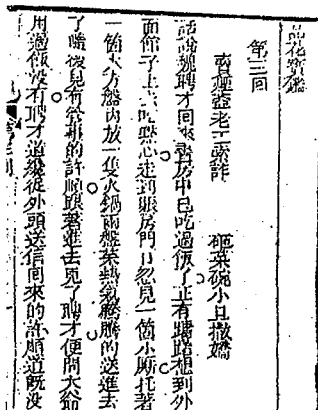 品花寶鑑
第三回
賣煙壺老王索詐 砸菜碗小旦撒嬌
話說魏聘才回來書房中已吃過飯了正有躊躇想到外
面館子上去吃點心走到賬房門口忽見一箇小厮托著
一箇大方盤內放一隻火鍋兩盤菜熱氣騰騰的送進去
了隨後見有管事的許順跟著進去見了聘才便問大爺
用過飯沒有聘才道纔從外頭送信回來的許順道既沒